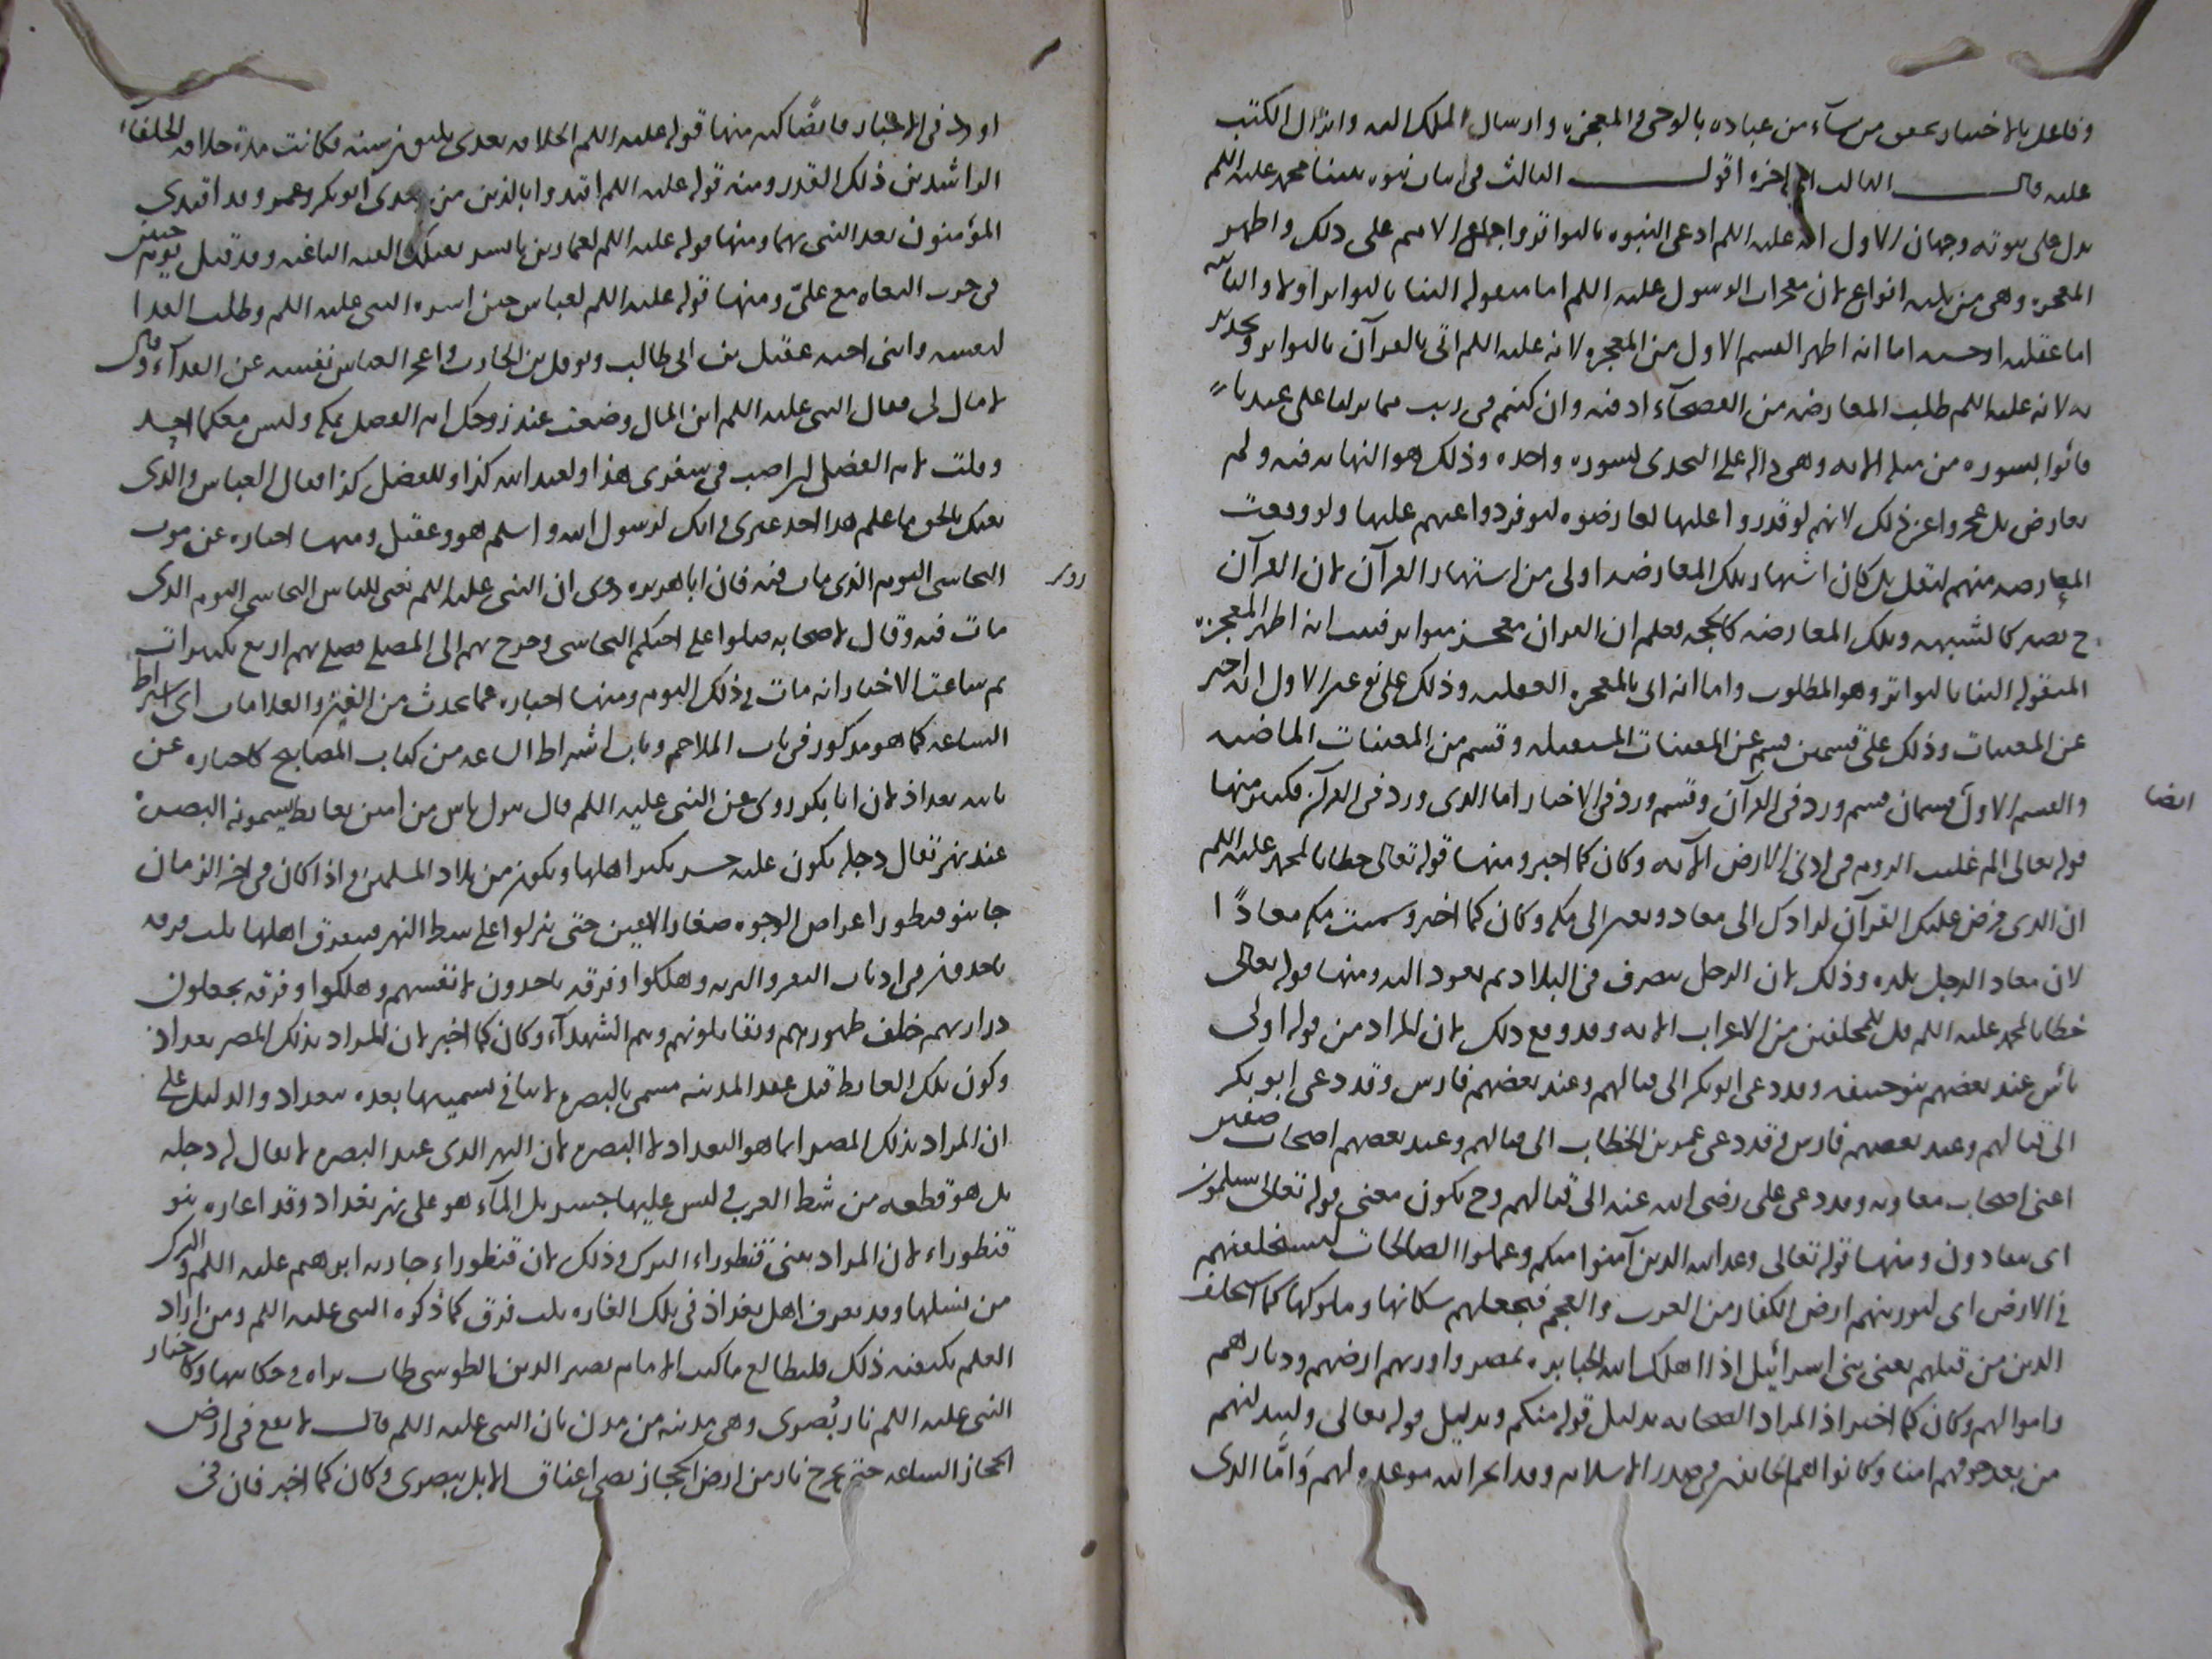 وفاعل بالاختيار يصطفى من يشاء من عباده بالوحى والمعجزه وارسال الملك اليه وانزال الكتب
عليه قال الثالث الى اخره اقول الثالث فى اثبات نبوه نبينا محمد عليه السلم
يدل على نبوته وجهان الاول انه عليه السلم ادعى النبوه بالتواتر واجماع الامم على ذلك واظهر
المعجزه وهى من ثلثه انواع لان معجزات الرسول عليه السلم اما منقوله الينا بالتواتر اولا والثانيه
اما عقليه او حسيه اما انه اظهر القسم الاول من المعجزه لانه عليه السلم اتى بالقرآن بالتواتر وتحدى
به لانه عليه السلم طلب المعارضه من الفصحآء اذ فيه وان كنتم فى ريب مما نزلنا على عبدنا
فأتوا بسوره من مثله الايه وهى داله على التحدى بسوره واحده وذلك هو النهايه فيه ولم
يعارض بل عجزوا عن ذلك لانهم لو قدروا عليها لعارضوه لتوفر دواعيهم عليها ولو وقعت
المعارضه منهم لنقل بل كان اشتهار تلك المعارضه اولى من اشتهار القرآن لان القرآن
ح يصير كالشبهه وتلك المعارضه كالحجه فعلم ان القران معجز متواتر فثبت انه اظهر المعجزه
المنقوله الينا بالتواتر وهو المطلوب واما انه اتى بالمعجزه العقليه وذلك على نوعين الاول انه اخبر
عن المغيبات وذلك على قسمين قسم عن المغيبات المستقبله وقسم من المغيبات الماضيه
والقسم الاول قسمان قسم ورد فى القرآن وقسم ورد فى الاخبار اما الذى ورد فى القرآن فكثير منها
ايضا
قوله تعالى الم غلبت الروم فى ادنى الارض الآيه وكان كما اخبر ومنها قوله تعالى خطابا لمحمد عليه السلم
ان الذى فرض عليك القرآن لرادك الى معاد وتفسر الى مكه وكان كما اخبر وسميت مكه معادًا
لان معاد الرجل بلده وذلك لان الرجل يتصرف فى البلاد ثم يعود اليه ومنها قوله تعالى
خطابا لمحمد عليه السلم قل للمخلفين من الاعراب الايه وقد وقع ذلك لان المراد من قوله اولى
بأس عند بعضهم بنو حنيفه وقد دعى ابو بكر الى قتالهم وعند بعضهم فارس وقد دعى ابو بكر
الى قتالهم وعند بعضهم فارس وقد دعى عمر بن الخطاب الى قتالهم وعند بعضهم اصحاب صفين
اعنى اصحاب معاويه وقد دعى على رضى الله عنه الى قتالهم وح يكون معنى قوله تعالى يسلمون
اى ينقادون ومنها قوله تعالى وعد الله الذين آمنوا منكم وعملوا الصالحات ليستخلفنهم
فى الارض اى ليورثنهم ارض الكفار من العرب والعجم فيجعلهم سكانها وملوكها كما استخلف
الذين من قبلهم يعنى بنى اسرائيل اذ اهلك الله الجبابره بمصر واورثهم ارضهم وديارهم
واموالهم وكان كما اخبر اذ المراد الصحابه بدليل قوله منكم وبدليل قوله تعالى وليبدلنهم
من بعد خوفهم امنا وكانوا هم الخائفين فى صدر الاسلام وقد انجز الله موعده لهم وَامَّا الذى
اورد فى الاخبار فايضًا كثير منها قوله عليه السلم الخلافه بعدى ثلثون سنه فكانت مدة خلافه الخلفآء
الراشدين ذلك القدر ومنه قوله عليه السلم اقتدوا بالذين من بعدى ابو بكر وعمر وقد اقتدى
المؤمنون بعد النبى بهما ومنها قوله عليه السلم لعمار بن ياسر تقتلك الفئه الباغيه وقد قتل يوم صفين
فى حرب البغاه مع علىّ ومنها قوله عليه السلم لعباس حين اسره النبى عليه السلم وطلب الفدا
لنفسه وابنى اخيه عقيل بن ابى طالب ونوفل بن الحارث واعجز العباس نفسه عن الفدآء وقال
لا مال لى فقال النبى عليه السلم اين المال وضعت عند زوجك ام الفضل بمكه وليس معكما احد
وقلت لام الفضل ان اصبت فى سفرى هذا ولعبد الله كذا وللفضل كذا فقال العباس والذى
بعثك بالحق ما علم هذا احد غيرى وانك لرسول الله واسلم هو وعقيل ومنها اخباره عن موت
النجاشى اليوم الذى مات فيه فان ابا هريره روى ان النبى عليه السلم نعى للناس النجاشى اليوم الذى
روى
مات فيه وقال لاصحابه صلوا على اخيكم النجاشى وخرج بهم الى المصلى فصلى بهم اربع تكبيرات
ثم شاعت الاخبار انه مات فى ذلك اليوم ومنها اخباره عما يحدث من الفتن والعلامات اى اشراط
الساعه كما هو مذكور فى باب الملاحم وباب اشراط الساعه من كتاب المصابيح كاخباره عن
بناء بغداد لان ابا بكر روى عن النبى عليه السلم قال ينزل ناس من امتى بغائط يسمونه البصره
عند نهر تقال دجله يكون عليه جسر يكثر اهلها ويكون من بلاد المسلمين واذا كان فى اخر الزمان
جا بنو قنطورا عراض الوجوه صغار الاعين حتى ينزلوا على شط النهر فيتفرق اهلها ثلث فرقه
ياخذون فى اذناب البقر والبريه وهلكوا وفرقه ياخذون لانفسهم وهلكوا وفرقه يجعلون
ذراريهم خلف ظهورهم ويقاتلونهم وهم الشهدآء وكان كما اخبر لان المراد بذلك المصر بغداد
وكون تلك الغائط قبل عقد المدينه مسمى بالبصره لا ينافى تسميتها بعده ببغداد والدليل على
ان المراد بذلك المصر انما هو البغداد لا البصره لان النهر الذى عند البصره لا يقال له دجله
بل هو قطعه من شط العرب وليس عليها جسر بل المآء هو على نهر بغداد وقد اغاره بنو
قنطوراء لان المراد ببنى قنطوراء الترك وذلك لان قنطوراء جاريه ابرهيم عليه السلم والترك
من نسلها وقد تفرق اهل بغداد فى تلك الغاره ثلث فرق كما ذكره النبى عليه السلم ومن اراد
العلم بكيفيه ذلك فليطالع ما كتب الامام نصير الدين الطوسى طاب ثراه فى حكايتها وكاخبار
النبى عليه السلم نار بُصرى وهى مدينه من مدن بان النبى عليه السلم قال لا يقع فى ارض
الحجاز الساعه حتى يخرج نار من ارض الحجاز تضىء اعناق الابل ببصرى وكان كما اخبر فان فى